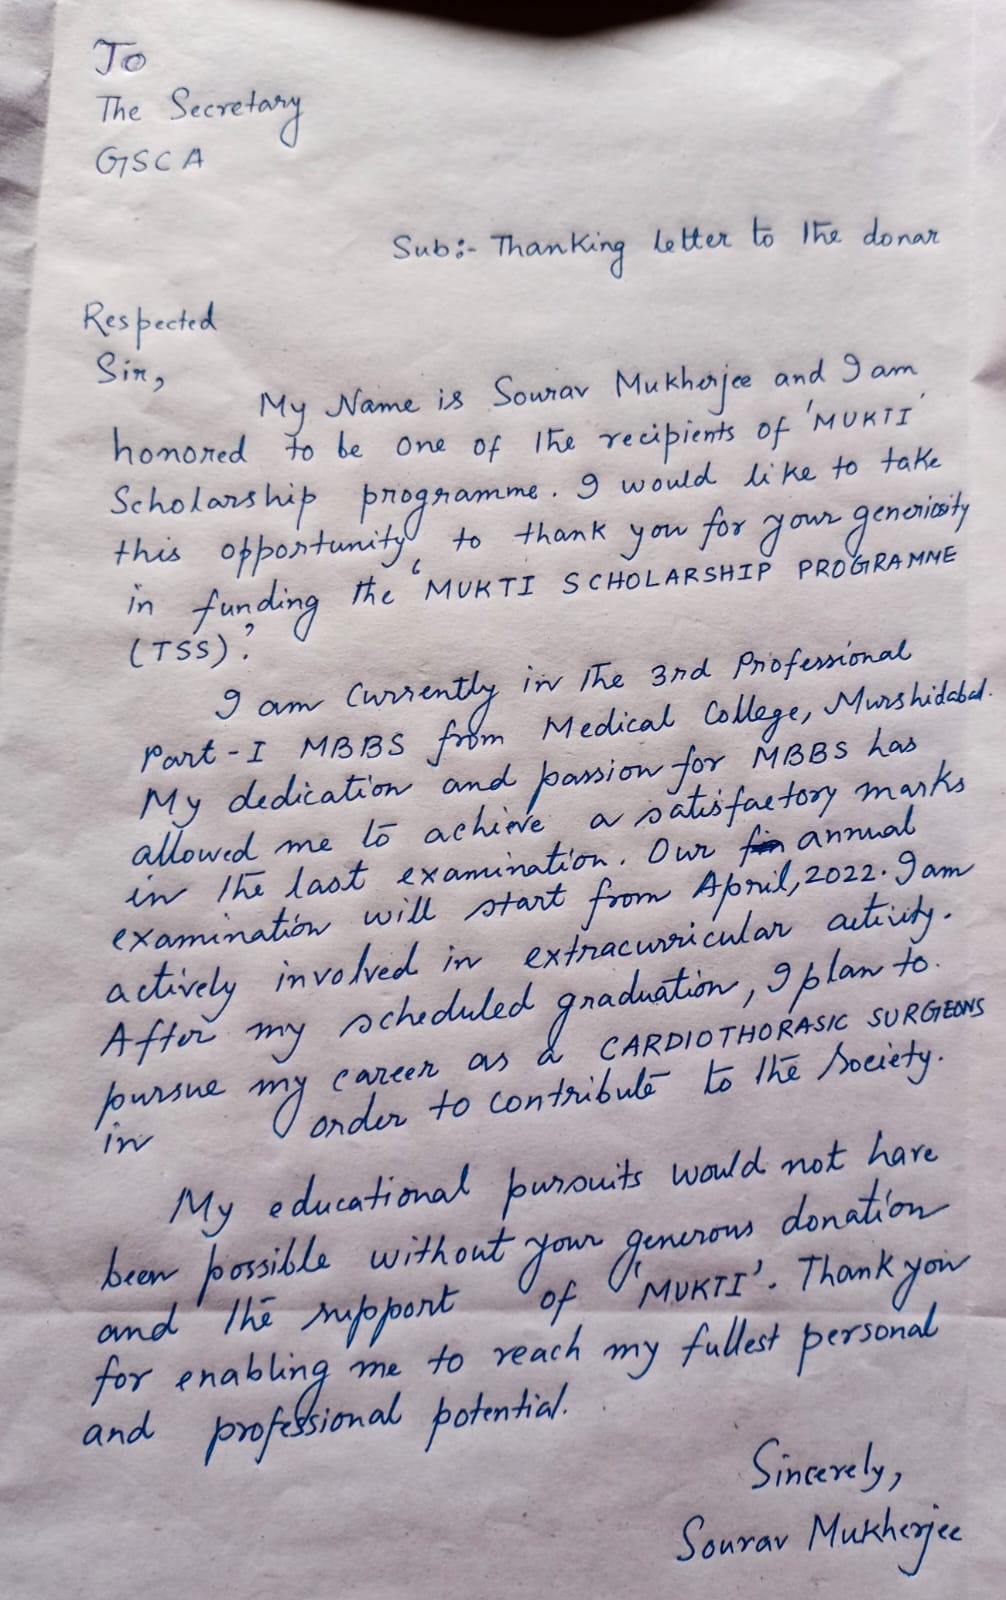 To
The Secretary
GSCA
Sub:- Thanking letter to the donar
Respected
Sir,
My Name is Sourav Mukherjee and I am
honored to be one of the recipients of 'MUKTI'
Scholarship programme. I would like to take
this opportunity to thank you for your
in funding the 'MUKTI SCHOLARSHIP PROGRAMME
(TSS)'.
I am currently in the 3rd Professional
Part-I MBBS from Medical College, Murshidabad.
My dedication and passion for MBBS has
allowed me to achieve a satisfactory marks
in the last examination. Our annual
examination will start from April, 2022. I am
actively involved in extracurricular activity.
After my scheduled graduation, I plan to
pursue my career as a CARDIOTHORASIC SURGEONS
in order to contribute to the society.
My educational pursuits would not have
been possible without your generous donation
and the support of 'MUKTI'. Thank you
for enabling me to reach my fullest personal
and professional potential.
Sincerely,
Sourav Mukherjee